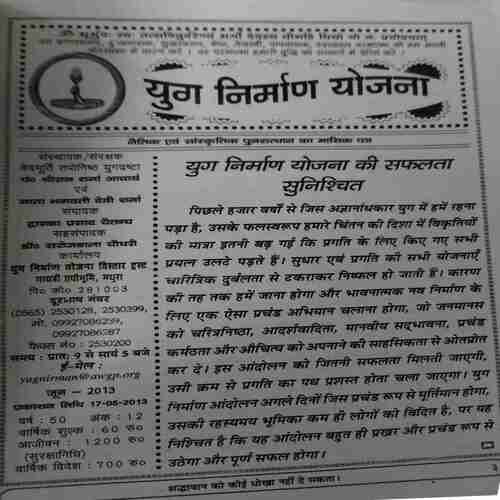 ॐ भूर्भुवः स्वः तत्सवितुर्वरेण्यं भर्गो देवस्य धीमहि धियो यो नः प्रचोदयात्
युग निर्माण योजना
नैतिक एवं सांस्कृतिक पुनरुत्थान का मासिक पत्र
संस्थापक/संरक्षक
वेदमूर्ति तपोनिष्ठ युगद्रष्टा
पं० श्रीराम शर्मा आचार्य
एवं
माता भगवती देवी शर्मा
संपादक
द्वारका प्रसाद चैतन्य
सहसंपादक
डॉ० सरोजबाला चौधरी
कार्यालय
युग निर्माण योजना विस्तार ट्रस्ट
गायत्री तपोभूमि, मथुरा
पि० को० 281003
दूरभाष नंबर
(0565) 2530128, 2530399,
मो. 09927086289,
09927086287
फैक्स नं० 2530200
समय : प्रातः 9 से सायं 5 बजे
ई-मेल :
yugnirman@awgp.org
जून – 2013
प्रकाशन तिथि 17-05-2013
वर्ष : 50 अंक : 12
वार्षिक शुल्क : 60 रु०
आजीवन : 1200 रु०
(सुरक्षानिधि)
वार्षिक विदेश : 700 रु०
युग निर्माण योजना की सफलता
सुनिश्चित
पिछले हजार वर्षों से जिस अज्ञानांधकार युग में हमें रहना
पड़ा है, उसके फलस्वरूप हमारे चिंतन की दिशा में विकृतियों
की मात्रा इतनी बढ़ गई कि प्रगति के लिए किए गए सभी
प्रयत्न उलटे पड़ते हैं। सुधार एवं प्रगति की सभी योजनाएँ
चारित्रिक दुर्बलता से टकराकर निष्फल हो जाती हैं। कारण
की तह तक हमें जाना होगा और भावनात्मक नव निर्माण के
लिए एक ऐसा प्रचंड अभियान चलाना होगा, जो जनमानस
को चरित्रनिष्ठा, आदर्शवादिता, मानवीय सद्भावना, प्रचंड
कर्मठता और औचित्य को अपनाने की साहसिकता से ओतप्रोत
कर दे। इस आंदोलन को जितनी सफलता मिलती जाएगी,
उसी क्रम से प्रगति का पथ प्रशस्त होता चला जाएगा। युग
निर्माण आंदोलन अगले दिनों जिस प्रचंड रूप से मूर्तिमान होगा,
उसकी रहस्यमय भूमिका कम ही लोगों को विदित है, पर यह
निश्चित है कि यह आंदोलन बहुत ही प्रखर और प्रचंड रूप से
उठेगा और पूर्ण सफल होगा।
सद्भावना को कोई धोखा नहीं दे सकता।